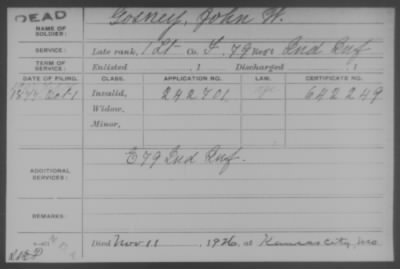 DEAD
Gosney, John W.
NAME OF SOLDIER:
SERVICE: Late rank, 1 Lt Co. F, 79 Regt Ind Inf
TERM OF SERVICE: Enlisted , 1 Discharged , 1
DATE OF FILING. CLASS. APPLICATION NO. LAW. CERTIFICATE NO.
1877 Oct 1 Invalid, 242701 642249
Widow,
Minor,
ADDITIONAL SERVICES: E 79 Ind Inf.
REMARKS:
Died Nov. 11, 1926, at Kansas City, Mo.